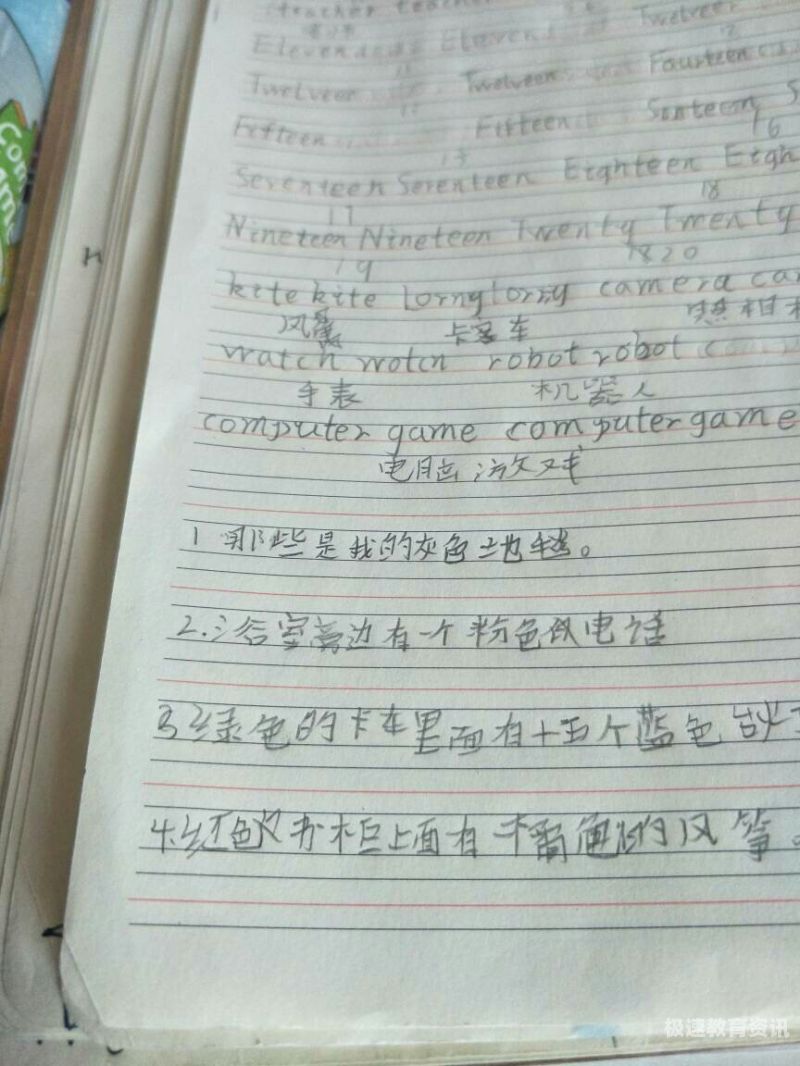 teacher teacher
Eleven Eleven Twelveer
Twelveer Twelveen Fourteen
12
Fifteen Fifteen Sixteen S
15 16
Seventeen Seventeen Eighteen Eigh
17 18
Nineteen Nineteen Twenty Twenty
19 1820
kite kite lorry lorry camera ca
风筝 卡车 照相机
watch watch robot robot
手表 机器人
computer game computer game
电脑游戏
1 那些是我的灰色地毯。
2.浴室旁边有一个粉色的电话
3绿色的卡车里面有十五个蓝色
4.红色的书柜上面有橘色的风筝。
n
Com
极速教育资讯